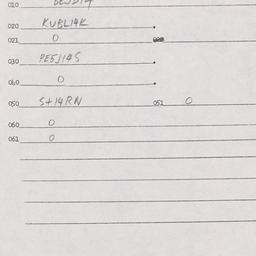 010
020 KUBL14K
021 0
030 PE5J14S
040 0
050 S+14RN 051 0
060 0
061 0